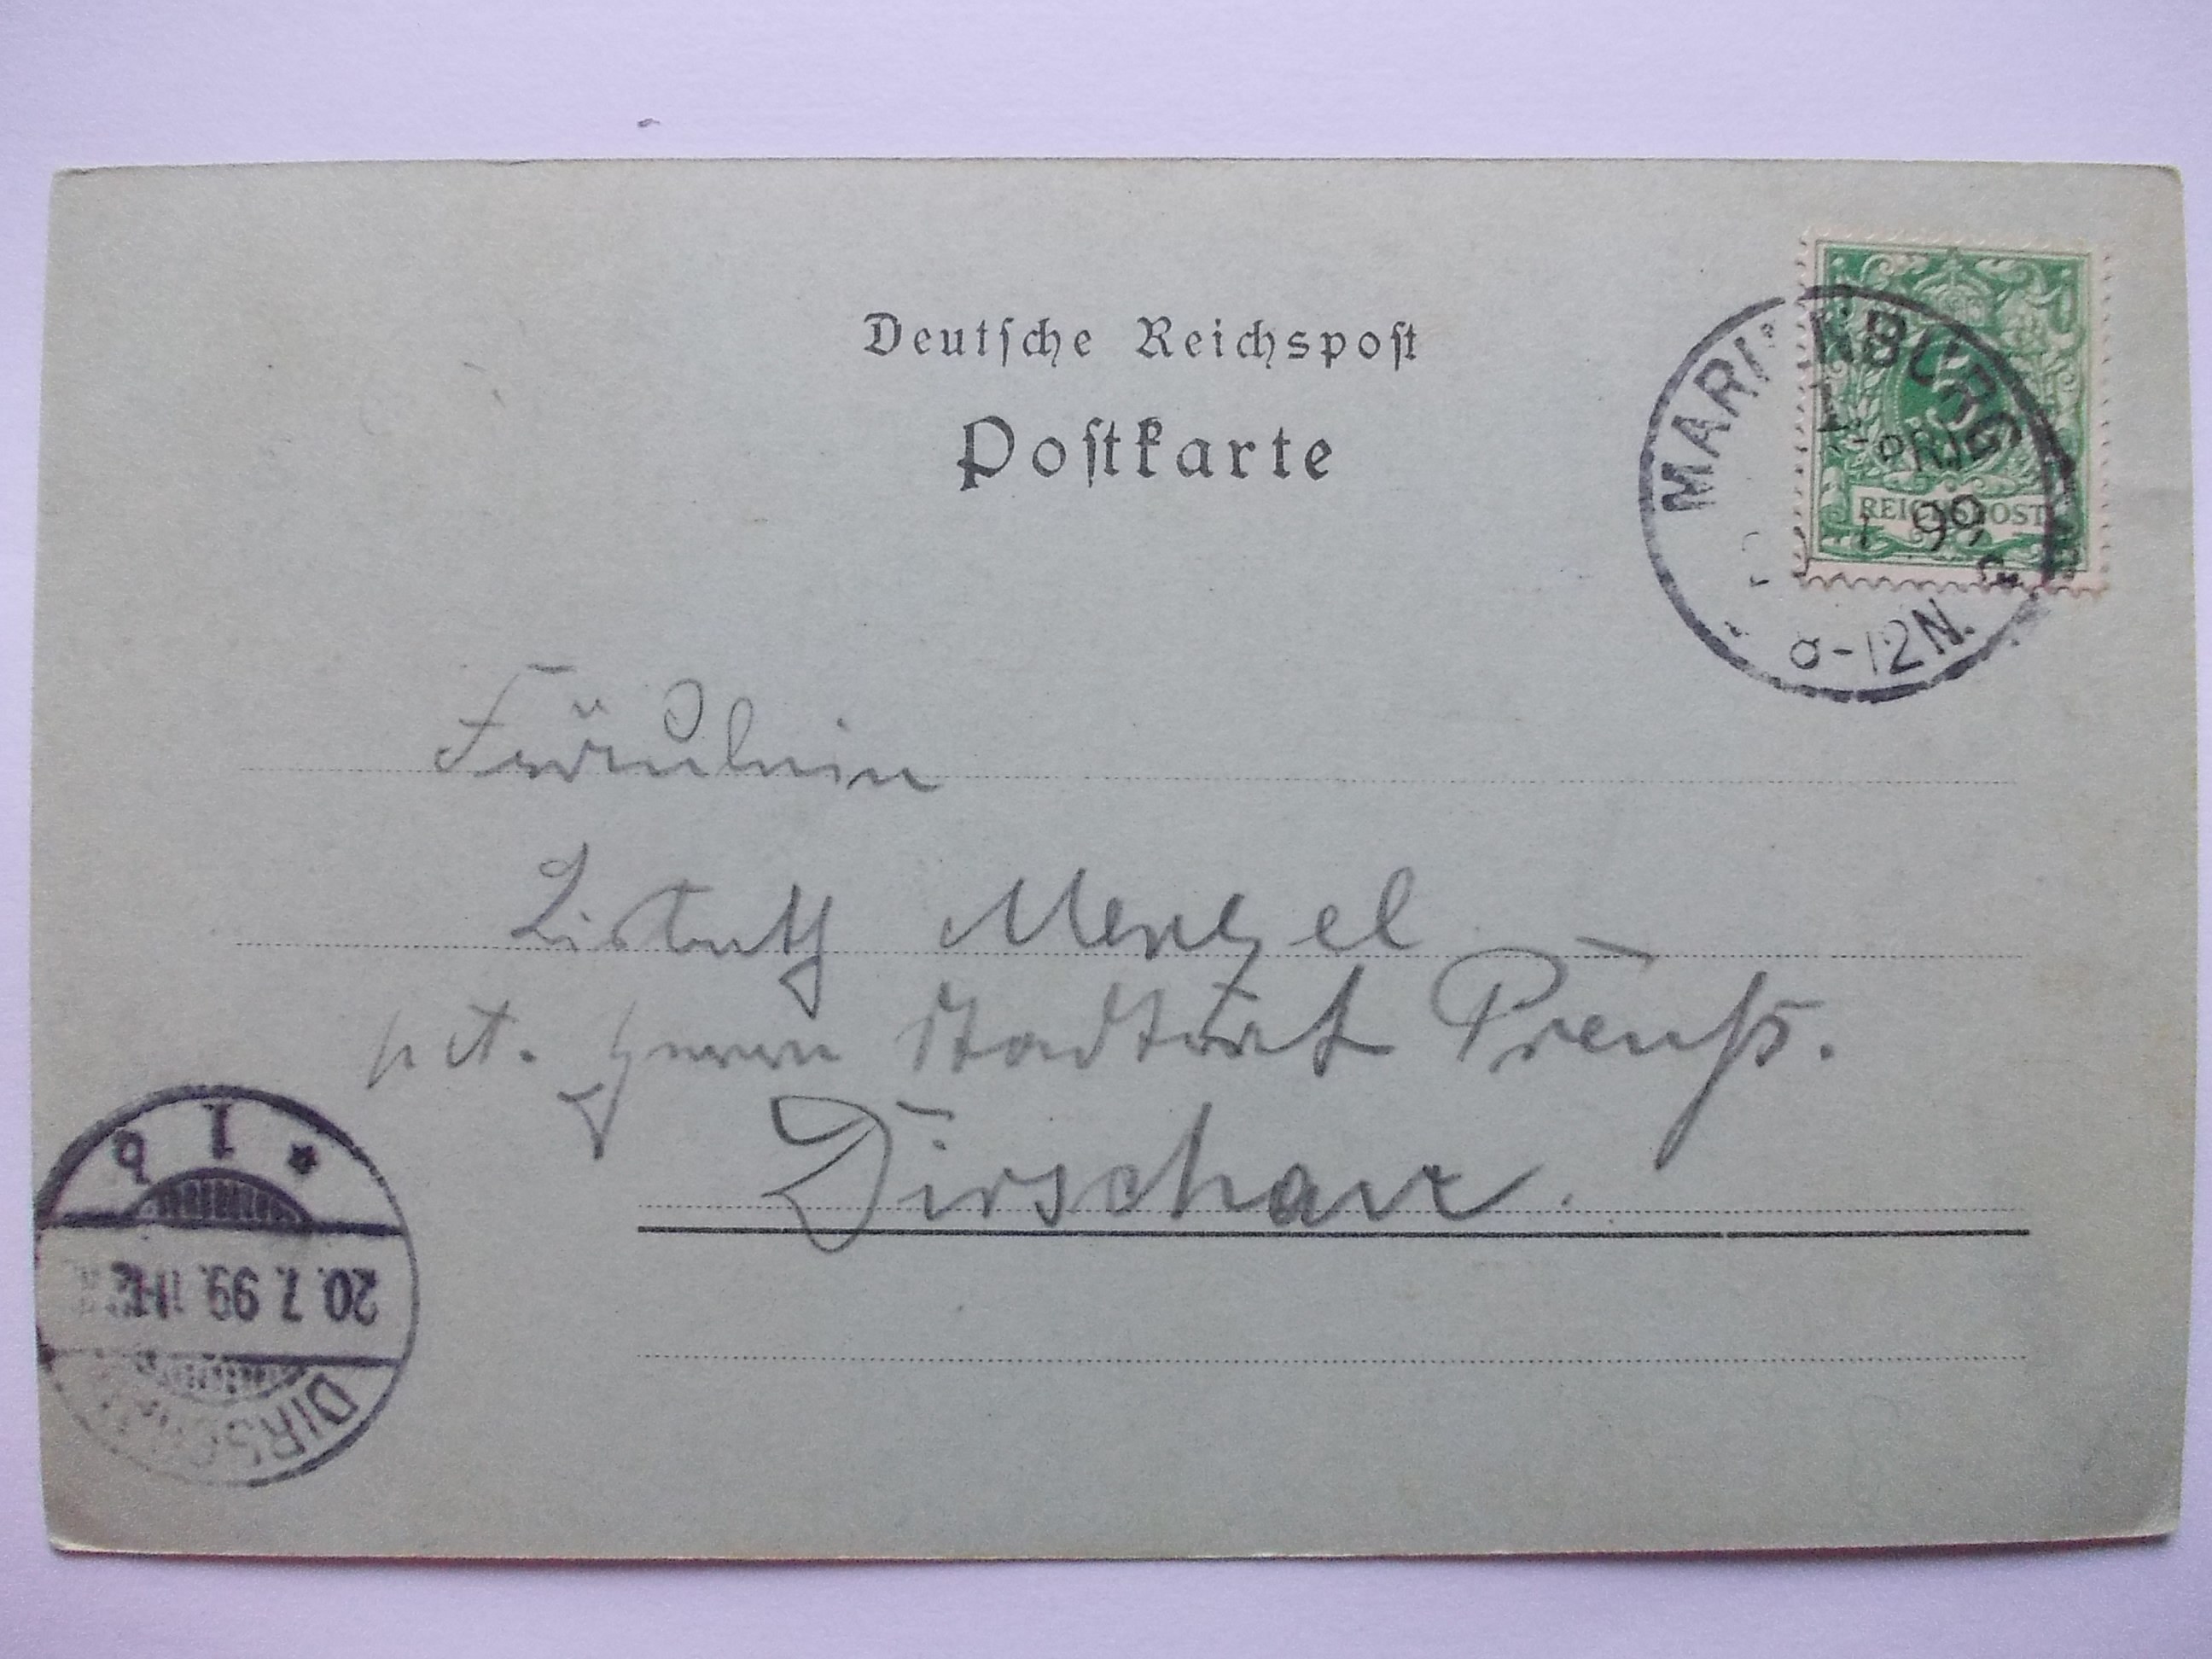 Deutsche Reichspost
Postkarte
MARIENBURG
WPR
7 99
8-12N.
REICHSPOST
Fräulein
Menzel
Herrn Stadtrat Preuß.
Dirschau.
DIRSCHAU
20.7.99.
* 1 b